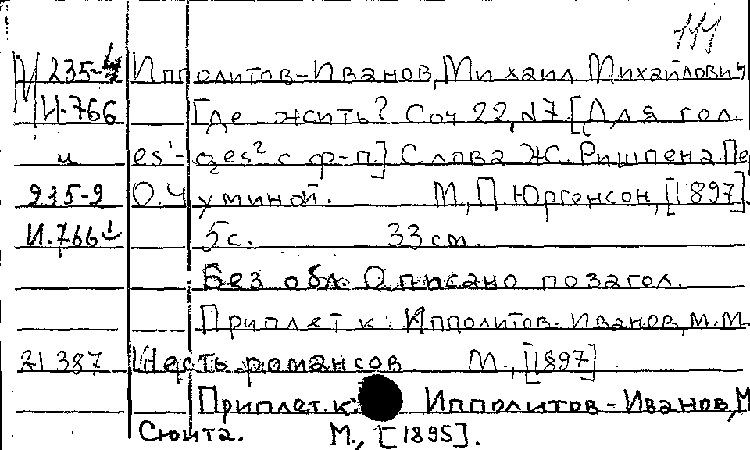 111
М 235-4 Ипполитов-Иванов, Михаил Михайлович
И.766 Где жить? Соч 22, №7 [Для гол.
и es¹-ges² с ф-п.] Слова Ж. Ришпена Пе
235-2 О. Чуминой. М., П. Юргенсон, [1897].
И.766 5с. 33 см.
Без обл. Описано по загол.
Приплет к: Ипполитов-Иванов, М.М.
71 387 Шесть романсов М., [1897]
Приплет. к: Ипполитов-Иванов, М
Сюита. М., [1895].